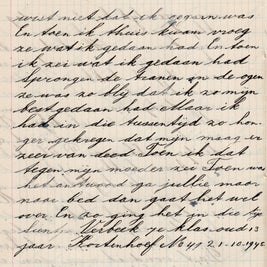 wist niet dat ik gegaan was
En toen ik thuis kwam vroeg
ze wat ik gedaan had. En toen
ik zei wat ik gedaan had
Sprongen de tranen in de ogen
ze was zo blij dat ik zo mijn
best gedaan had Maar ik
had in die tussentijd zo hon-
ger gekregen dat mijn maag er
zeer van deed Toen ik dat
tegen mijn moeder zei Toen was
het antwoord ga jullie maar
naar bed dan gaat het wel
over. En zo ging het in die
Verbeek 7e klas oud 13
jaar Kortenhoef 1-10-194